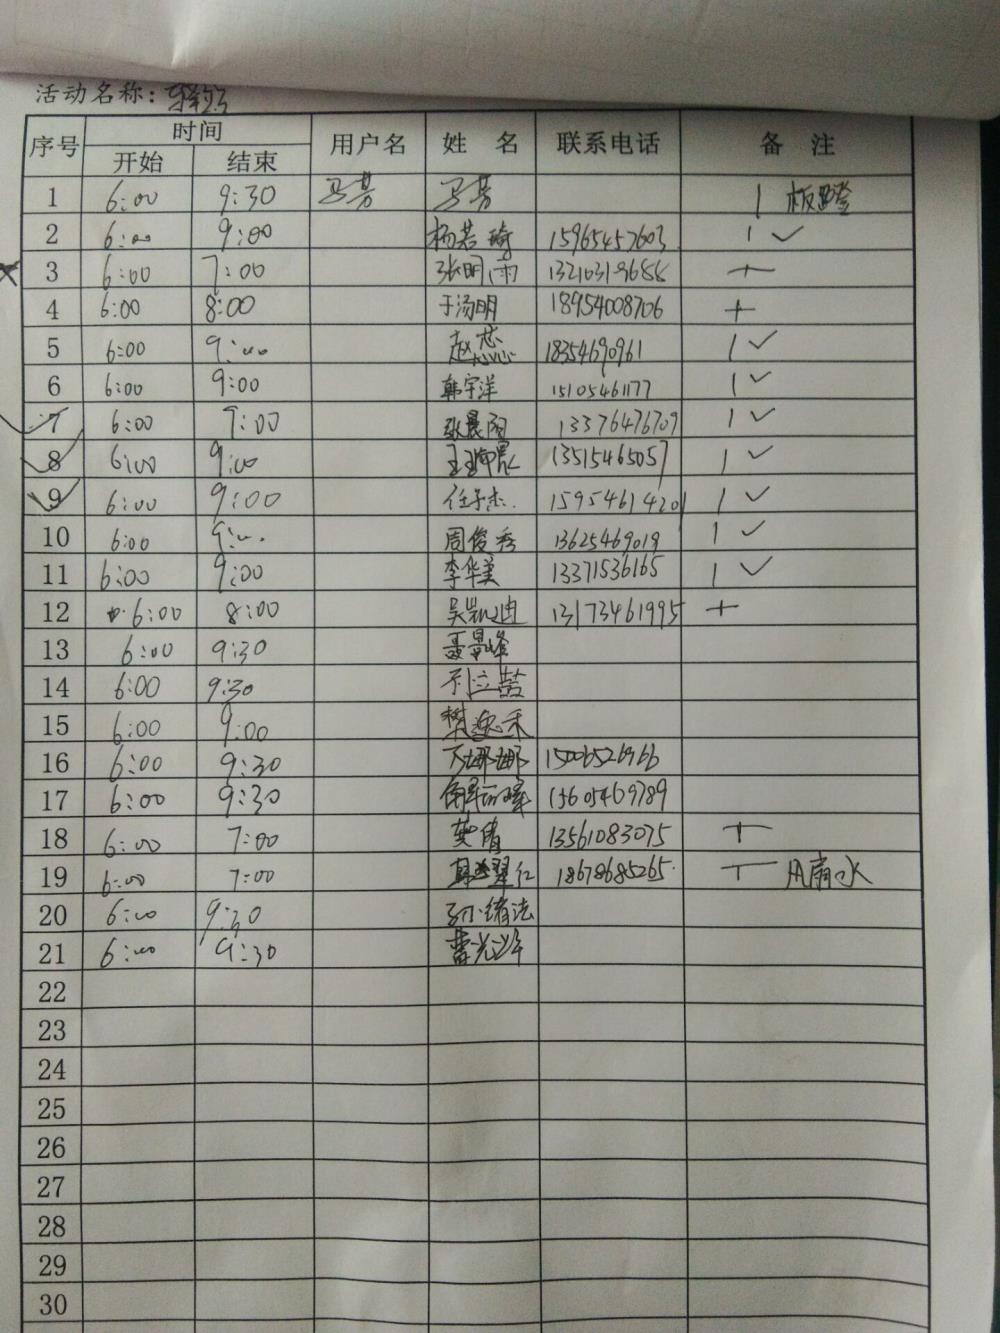 活动名称:
序号 时间 用户名 姓名 联系电话 备注
开始 结束
1 6:00 9:30 马芳 马芳 1 板凳
2 6:00 9:00 杨若琦 15965457603 1 ✓
3 6:00 7:00 张明雨 13210319688
4 6:00 8:00 于汤明 18954008706
5 6:00 9:00 赵蕊 18354690961 1 ✓
6 6:00 9:00 韩宇洋 15105461177 1 ✓
7 6:00 9:00 张晨阳 13376476709 1 ✓
8 6:00 9:00 13515465057 1 ✓
9 6:00 9:00 任子杰 15954614201 1 ✓
10 6:00 9:00 周俊秀 13625469019 1 ✓
11 6:00 9:00 李华美 13371536165 1 ✓
12 6:00 8:00 吴凯迪 13173461995
13 6:00 9:30 聂景峰
14 6:00 9:30
15 6:00 9:00 樊逸禾
16 6:00 9:30 15006526966
17 6:00 9:30 15605469789
18 6:00 7:00 13561083075
19 6:00 7:00 18678685265 风扇水
20 6:00 9:30 孙绪法
21 6:00 9:30
22
23
24
25
26
27
28
29
30